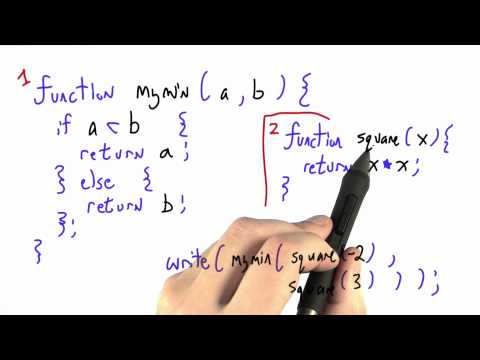 1
function mymin(a,b){
if a < b {
return a;
} else {
return b;
};
}
2 function square(x){
return x * x;
}
write(mymin(square(-2),
square(3)));